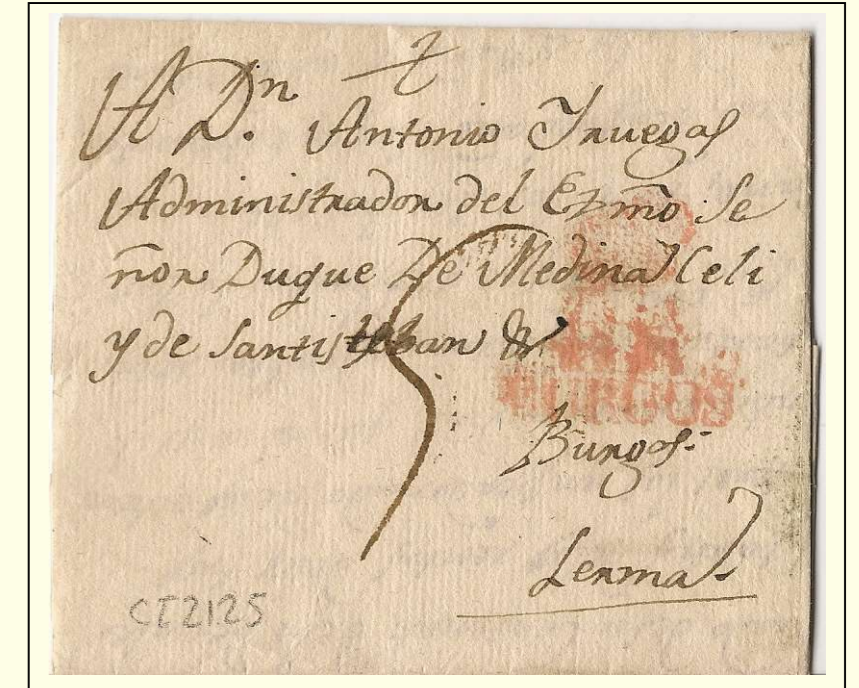 A D.n Antonio Yruegas
Administrador del Exmo Se
ñor Duque De Medina Celi
y de Santisteban &
BURGOS
Burgos
Lerma
CI2125